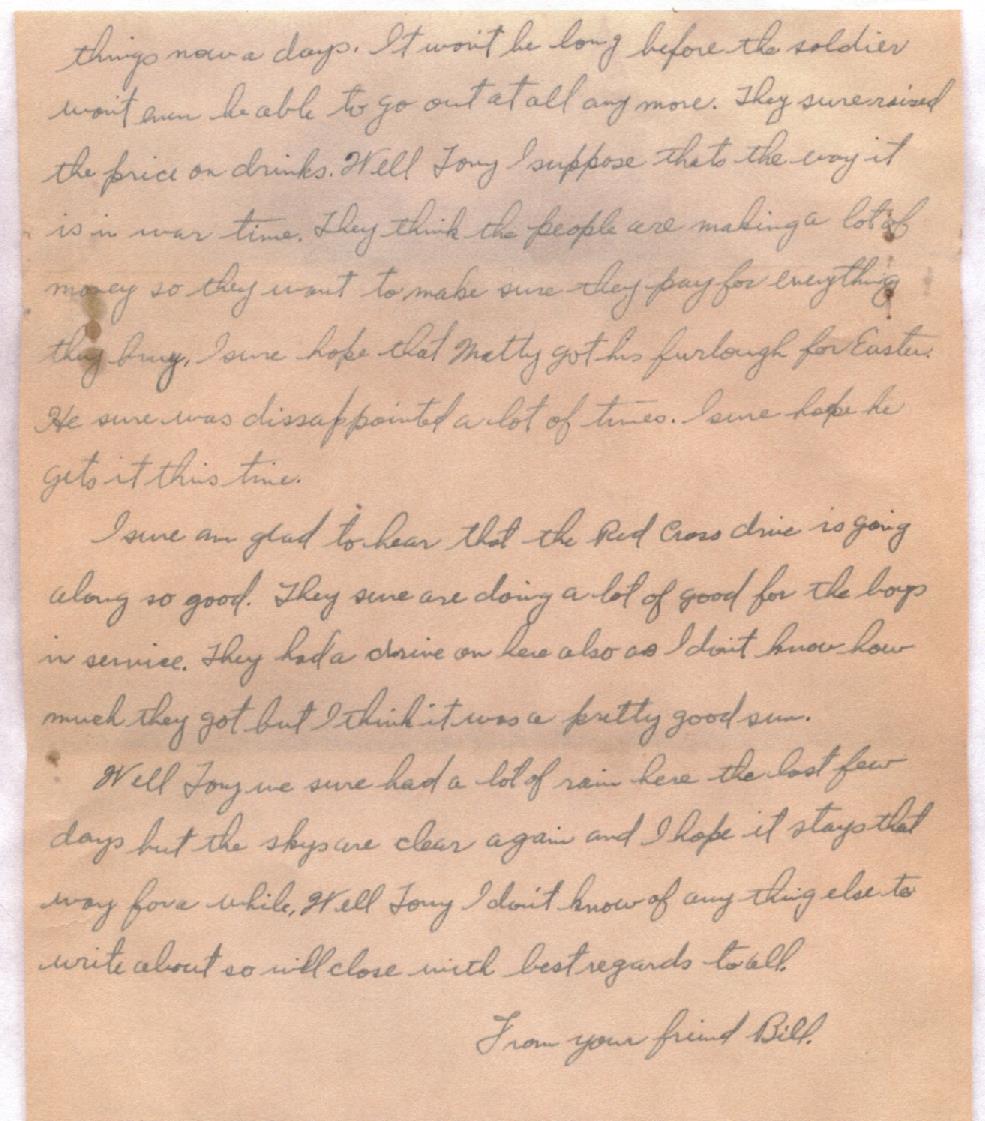 things now a days. It won't be long before the soldier
won't even be able to go out at all any more. They sure raised
the price on drinks. Well Tony I suppose thats the way it
is in war time. They think the people are making a lot of
money so they want to make sure they pay for everything
they buy. I sure hope that Matty got his furlough for Easter.
He sure was dissappointed a lot of times. I sure hope he
gets it this time.
I sure am glad to hear that the Red Cross drive is going
along so good. They sure are doing a lot of good for the boys
in service. They had a drive on here also as I don't know how
much they got but I think it was a pretty good sum.
Well Tony we sure had a lot of rain here the last few
days but the skys are clear again and I hope it stays that
way for a while. Well Tony I don't know of any thing else to
write about so will close with best regards to all.
From your friend Bill.